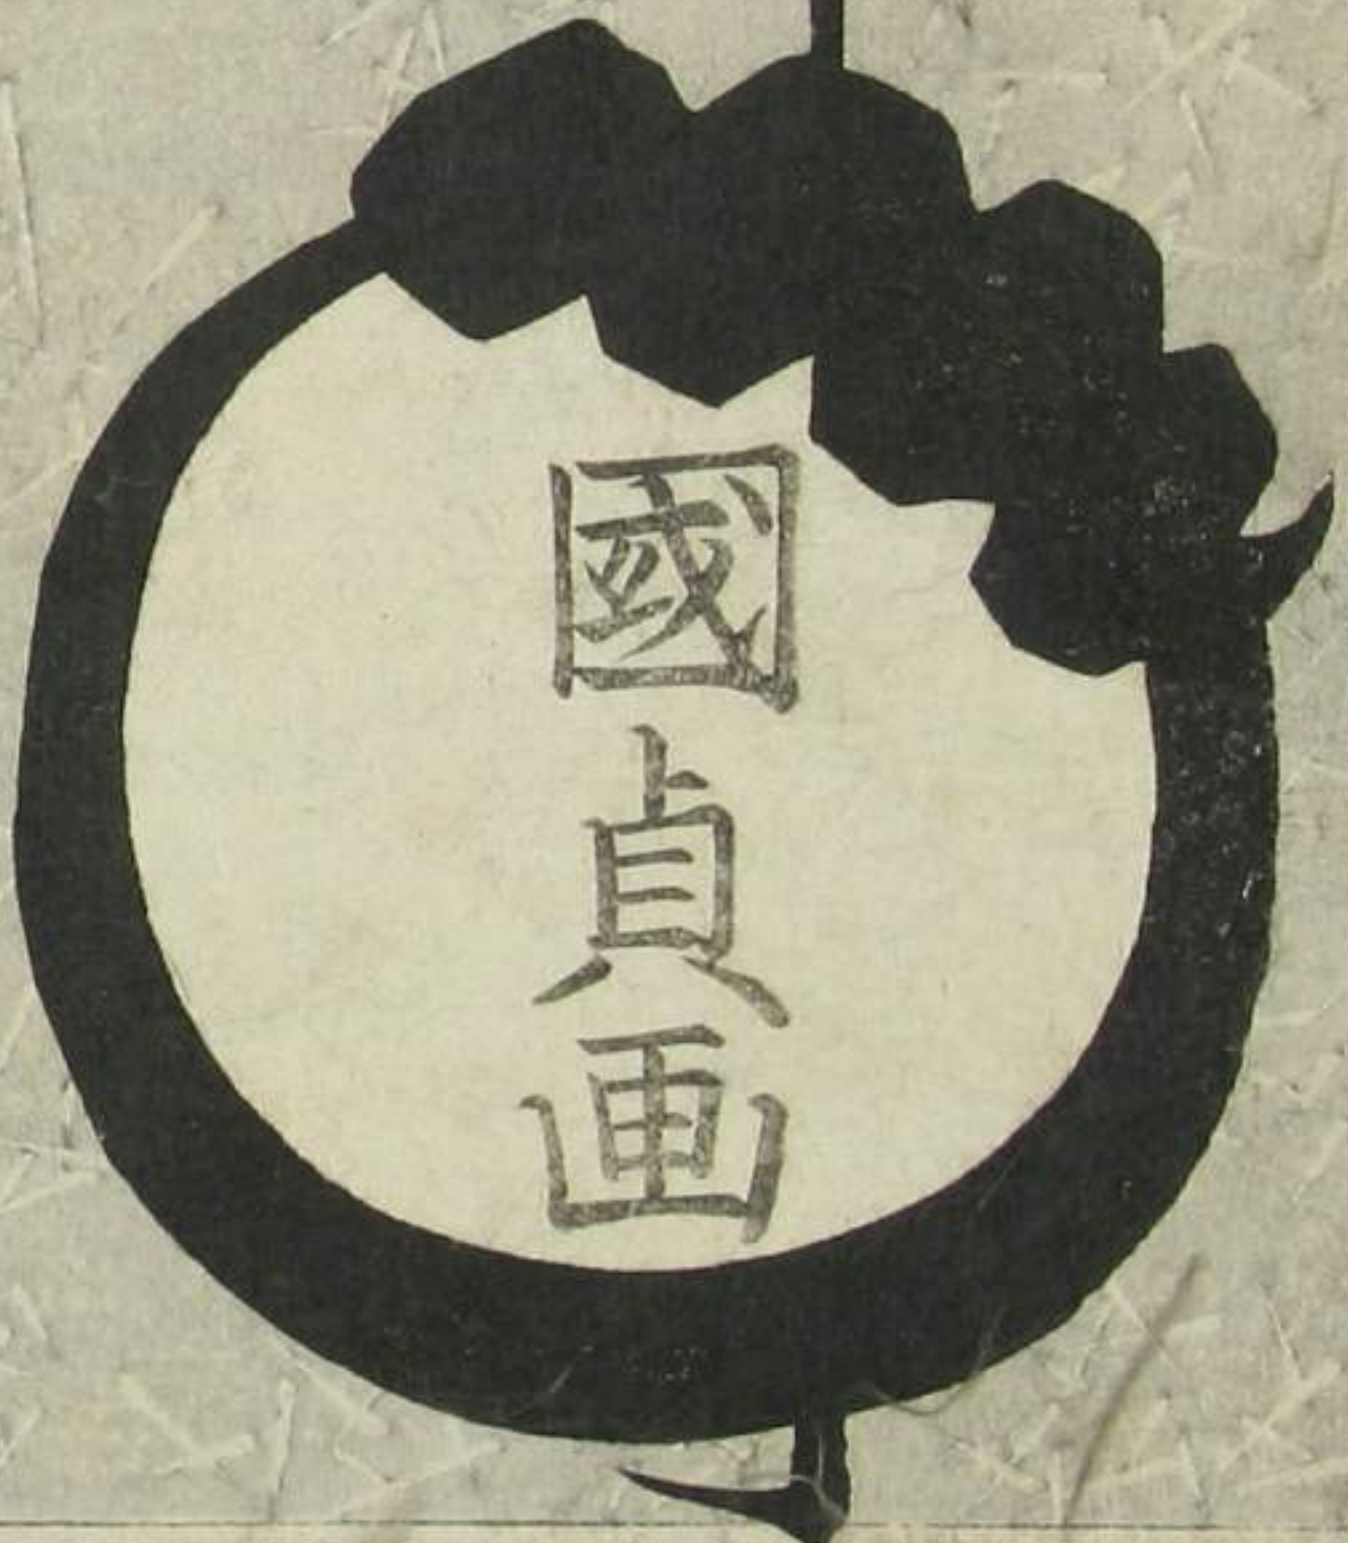 國貞画